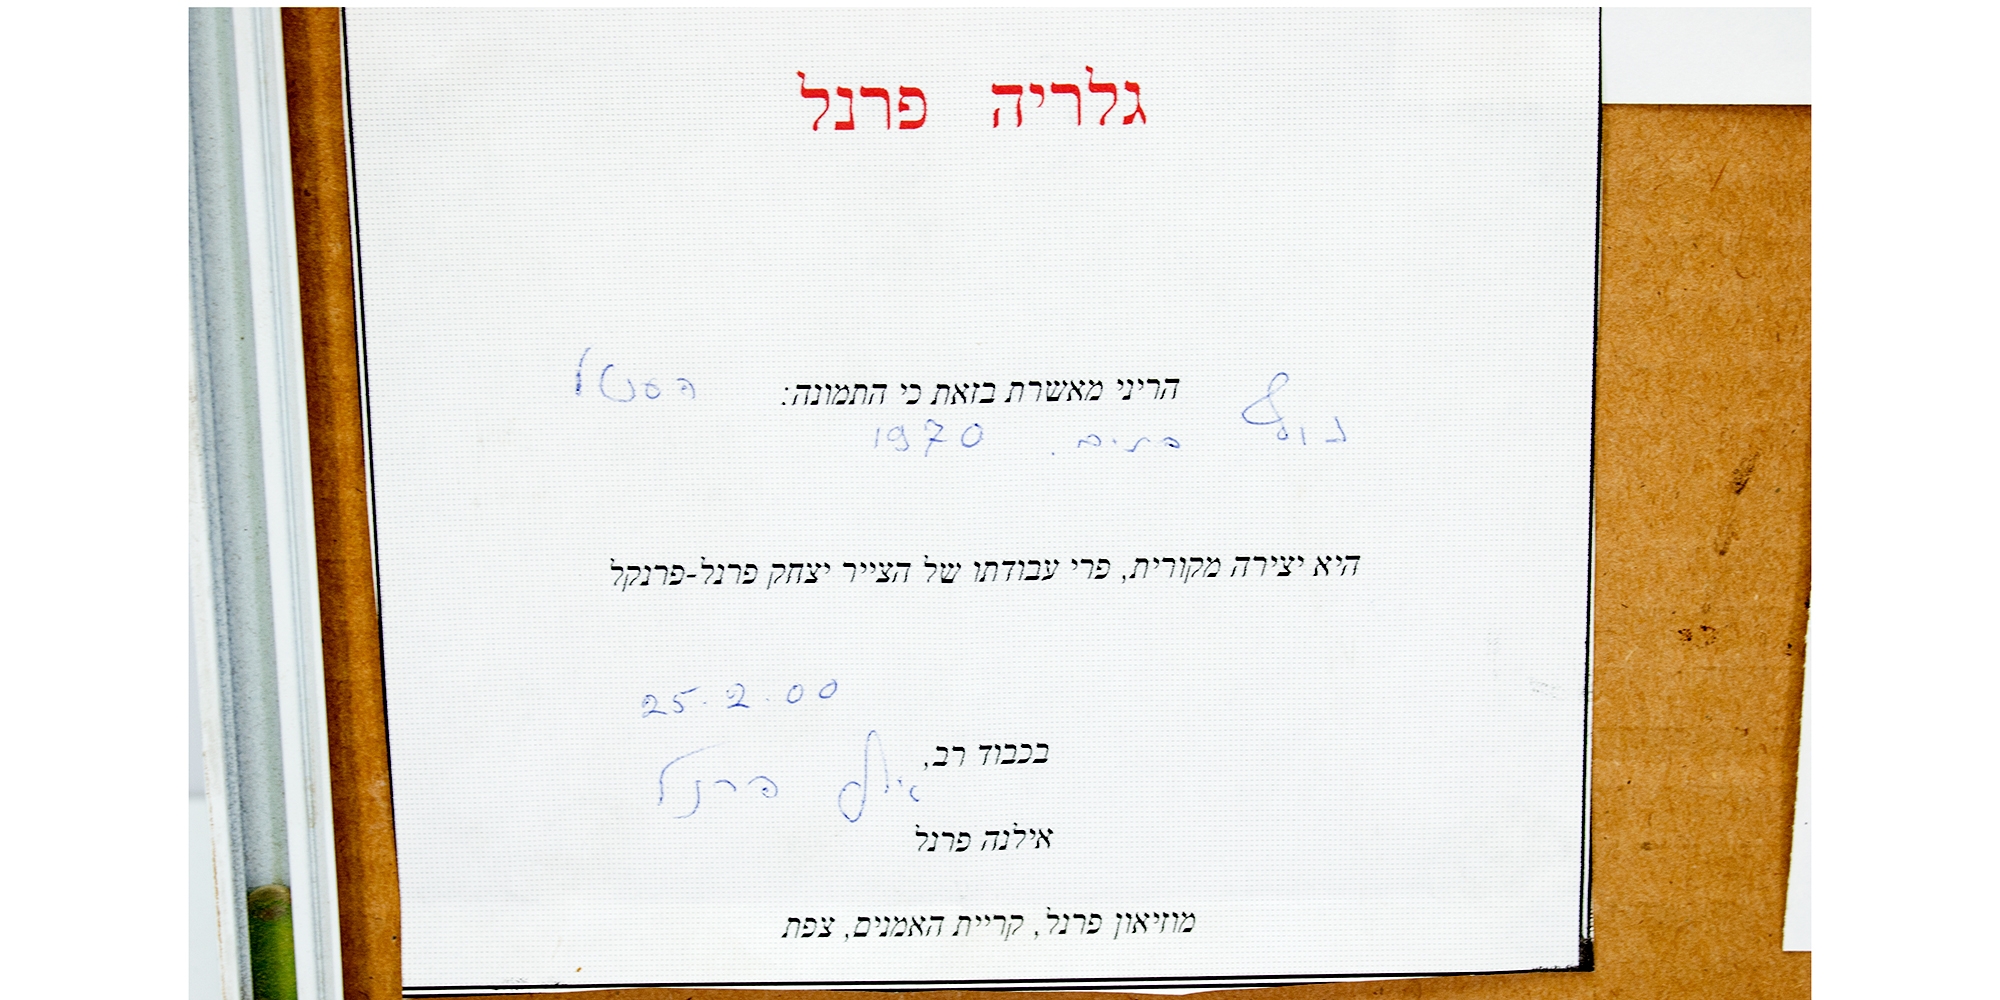 גלריה פרנל
הריני מאשרת בזאת כי התמונה: פסטל
נוף בתים. 1970
היא יצירה מקורית, פרי עבודתו של הצייר יצחק פרנל-פרנקל
25.2.00
בכבוד רב,
פרנל
אילנה פרנל
מוזיאון פרנל, קריית האמנים, צפת